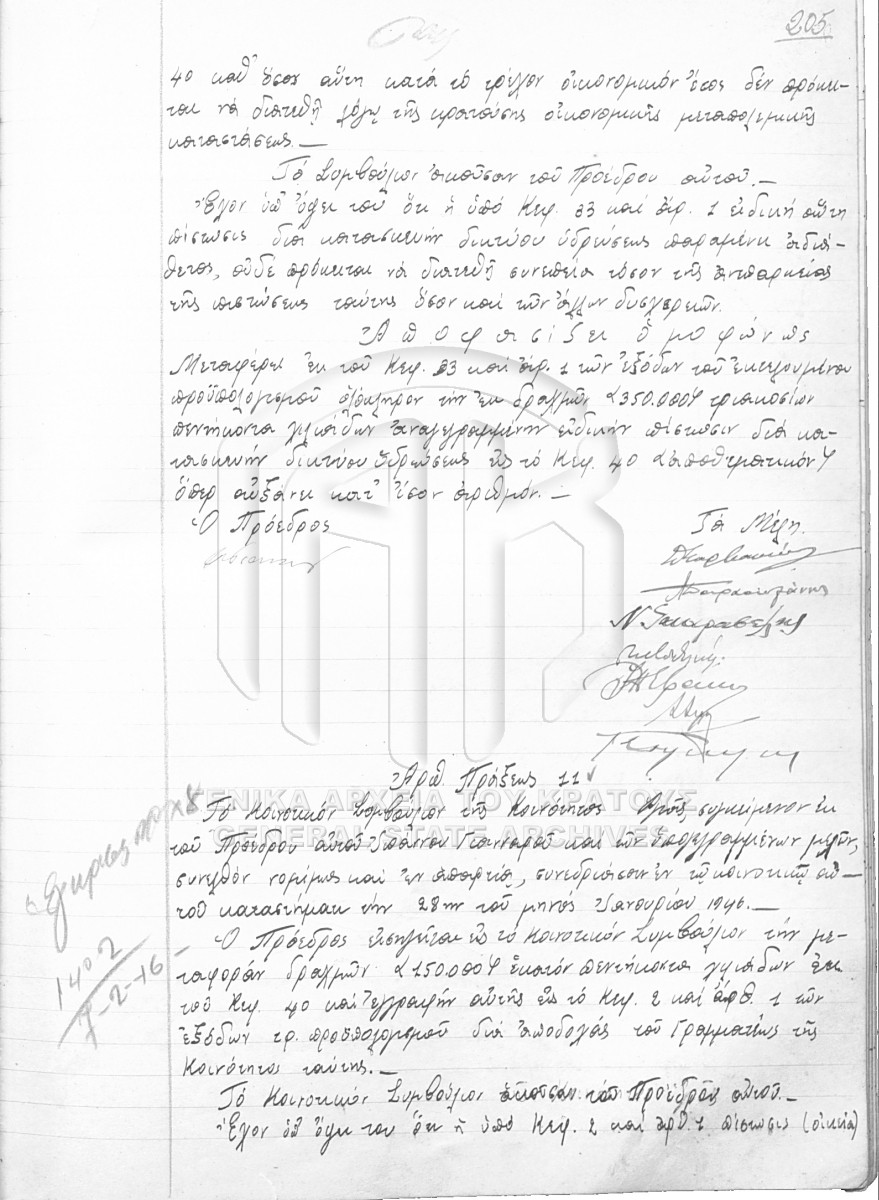 205
40 καθ' ὅσον αὕτη κατὰ τὸ τρέχον οἰκονομικὸν ἔτος δὲν πρόκει-
ται νὰ διατεθῇ λόγῳ τῆς κρατούσης οἰκονομικῆς μεταπολεμικῆς
καταστάσεως.—
Τὸ Συμβούλιον ἀκοῦσαν τοῦ Προέδρου αὐτοῦ.—
Ἔχον ὑπ' ὄψει του ὅτι ἡ ὑπὸ Κεφ. 33 καὶ ἄρ. 1 εἰδικὴ αὕτη
πίστωσις διὰ κατασκευὴν δικτύου ὑδρεύσεως παραμένει ἀδιά-
θετος, οὐδὲ πρόκειται νὰ διατεθῇ συνεπείᾳ τόσον τῆς ἀνεπαρκείας
τῆς πιστώσεως ταύτης ὅσον καὶ τῶν ἄλλων δυσχερειῶν.
Ἀποφασίζει ὁμοφώνως
Μεταφέρει ἐκ τοῦ Κεφ. 33 καὶ ἄρ. 1 τῶν ἐξόδων τοῦ ἐκτελουμένου
προϋπολογισμοῦ ὁλόκληρον τὴν ἐκ δραχμῶν (350.000) τριακοσίων
πεντήκοντα χιλιάδων ἀναγεγραμμένην εἰδικὴν πίστωσιν διὰ κα-
τασκευὴν δικτύου ὑδρεύσεως εἰς τὸ Κεφ. 40 (ἀποθεματικὸν)
ὅπερ αὐξάνει κατ' ἴσον ἀριθμόν.—
Ὁ Πρόεδρος Τὰ Μέλη.
Ἀριθ. Πράξεως 11
ΓΕΝΙΚΑ ΑΡΧΕΙΑ ΤΟΥ ΚΡΑΤΟΥΣ
GENERAL STATE ARCHIVES
Τὸ Κοινοτικὸν Συμβούλιον τῆς Κοινότητος συγκείμενον ἐκ
τοῦ Προέδρου αὐτοῦ Ἰωάννου Γιανναροῦ καὶ τῶν ὑπογεγραμμένων μελῶν,
συνελθὸν νομίμως καὶ ἐν ἀπαρτίᾳ, συνεδρίασεν ἐν τῷ κοινοτικῷ αὐ-
τοῦ καταστήματι τὴν 28ην τοῦ μηνὸς Ἰανουαρίου 1946.—
Ὁ Πρόεδρος εἰσηγεῖται εἰς τὸ Κοινοτικὸν Συμβούλιον τὴν με-
ταφορὰν δραχμῶν (150.000) ἑκατὸν πεντήκοντα χιλιάδων ἐκ
τοῦ Κεφ. 40 καὶ ἐγγραφὴν αὐτῆς εἰς τὸ Κεφ. 2 καὶ ἄρθ. 1 τῶν
ἐξόδων τρ. προϋπολογισμοῦ διὰ ἀποδοχὰς τοῦ Γραμματέως τῆς
Κοινότητος ταύτης.—
Τὸ Κοινοτικὸν Συμβούλιον ἀκοῦσαν τοῦ Προέδρου αὐτοῦ.—
Ἔχον ὑπ' ὄψει του ὅτι ἡ ὑπὸ Κεφ. 2 καὶ ἄρθ. 1 πίστωσις (οἰκεία)